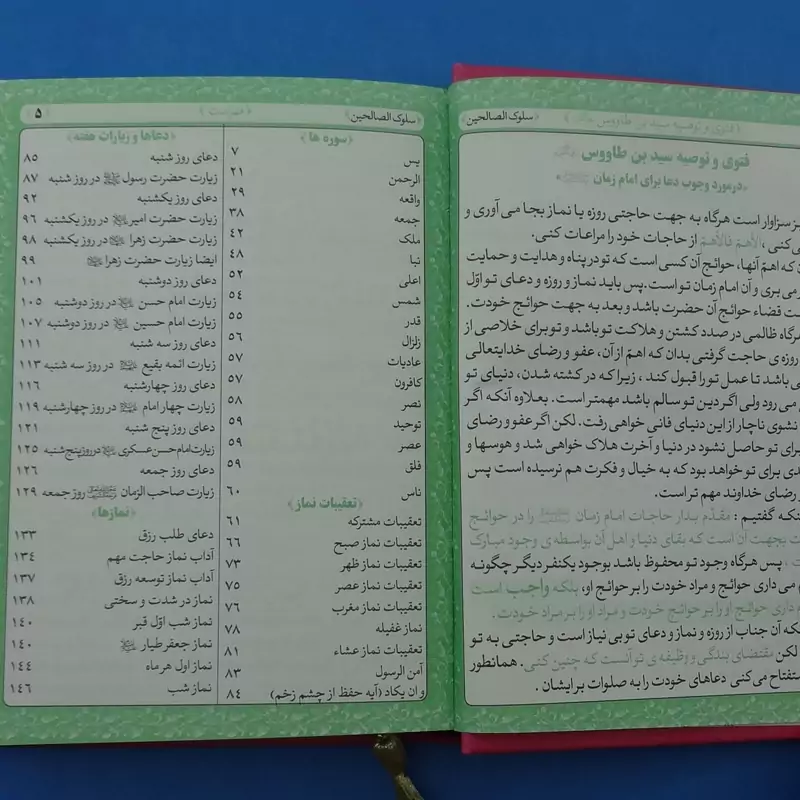 سلوک الصالحین
فتوی و توصیه سید بن طاووس
فتوی و توصیه سید بن طاووس
«درمورد وجوب دعا برای امام زمان
سزاوار است هرگاه به جهت حاجتی روزه یا نماز بجا می آوری و
کنی ،الأهمّ فالأهمّ از حاجات خود را مراعات کنی.
که اهمّ آنها، حوائج آن کسی است که تو در پناه و هدایت و حمایت
می بری و آن امام زمان تو است.پس باید نماز و روزه و دعای تو اوّل
قضاء حوائج آن حضرت باشد و بعد به جهت حوائج خودت.
ظالمی در صدد کشتن و هلاکت تو باشد و تو برای خلاصی از
روزه ی حاجت گرفتی بدان که اهمّ از آن، عفو و رضای خدایتعالی
باشد تا عمل تو را قبول کند ، زیرا که در کشته شدن، دنیای تو
می رود ولی اگر دین تو سالم باشد مهمتر است. بعلاوه آنکه اگر
نشوی ناچار از این دنیای فانی خواهی رفت. لکن اگر عفو و رضای
برای تو حاصل نشود در دنیا و آخرت هلاک خواهی شد و هوسها و
برای تو خواهد بود که به خیال و فکرت هم نرسیده است پس
رضای خداوند مهم تر است.
گفتیم : مقدّم بدار حاجات امام زمان را در حوائج
بجهت آن است که بقای دنیا و اهل آن بواسطه ی وجود مبارک
پس هرگاه وجود تو محفوظ باشد بوجود یکنفر دیگر چگونه
می داری حوائج و مراد خودت را بر حوائج او، بلکه واجب است
داری حوائج او را بر حوائج خودت و مراد او را بر مراد خودت.
آن جناب از روزه و نماز و دعای تو بی نیاز است و حاجتی به تو
لکن مقتضای بندگی و وظیفه ی تو آنست که چنین کنی. همانطور
می کنی دعاهای خودت را به صلوات برایشان .
سلوک الصالحین
فهرست
۵
سوره ها
یس ۷
الرحمن ۲۱
واقعه ۲۹
جمعه ۳۸
ملک ۴۲
نبا ۴۸
اعلی ۵۲
شمس ۵۴
قدر ۵۵
زلزال ۵۶
عادیات ۵۷
کافرون ۵۷
نصر ۵۸
توحید ۵۹
عصر ۵۹
فلق ۵۹
ناس ۶۰
تعقیبات نماز
تعقیبات مشترکه ۶۱
تعقیبات نماز صبح ۶۶
تعقیبات نماز ظهر ۷۳
تعقیبات نماز عصر ۷۵
تعقیبات نماز مغرب ۷۶
نماز غفیله ۷۸
تعقیبات نماز عشاء ۸۱
آمن الرسول ۸۳
و ان یکاد (آیه حفظ از چشم زخم) ۸۴
دعاها و زیارات هفته
دعای روز شنبه ۸۵
زیارت حضرت رسول ﷺ در روز شنبه ۸۷
دعای روز یکشنبه ۹۲
زیارت حضرت امیر در روز یکشنبه ۹۶
زیارت حضرت زهرا در روز یکشنبه ۹۸
ایضا زیارت حضرت زهرا ۹۹
دعای روز دوشنبه ۱۰۱
زیارت امام حسن در روز دوشنبه ۱۰۵
زیارت امام حسین در روز دوشنبه ۱۰۷
دعای روز سه شنبه ۱۱۱
زیارت ائمه بقیع در روز سه شنبه ۱۱۳
دعای روز چهارشنبه ۱۱۶
زیارت چهار امام در روز چهارشنبه ۱۱۹
دعای روز پنج شنبه ۱۲۱
زیارت امام حسن عسکری در روز پنج شنبه ۱۲۵
دعای روز جمعه ۱۲۶
زیارت صاحب الزمان روز جمعه ۱۲۹
نمازها
دعای طلب رزق ۱۳۳
آداب نماز حاجت مهم ۱۳۴
آداب نماز توسعه رزق ۱۳۷
نماز در شدت و سختی ۱۳۸
نماز شب اوّل قبر ۱۴۰
نماز جعفر طیار ۱۴۰
نماز اول هر ماه ۱۴۴
نماز شب ۱۴۶